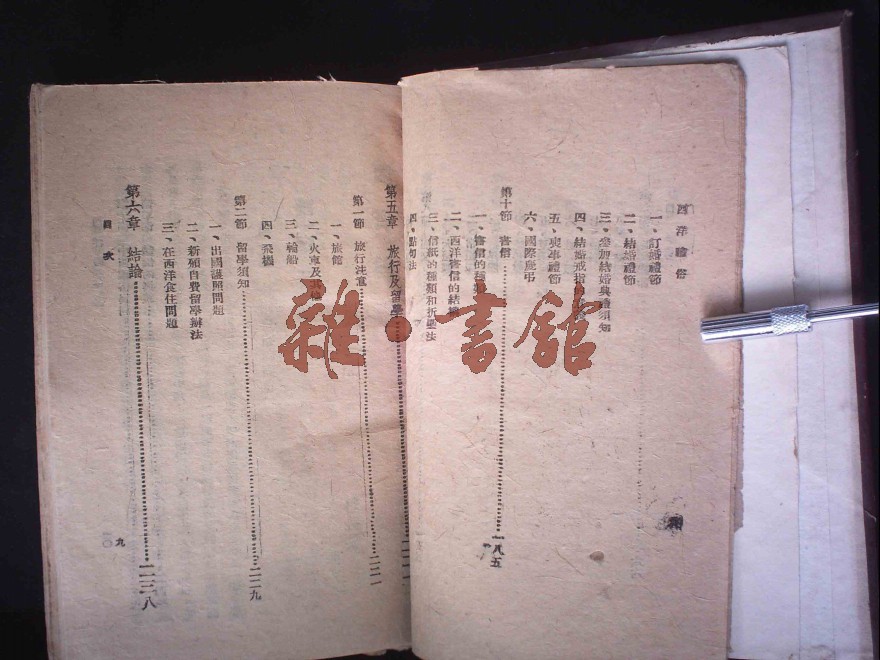 西洋禮俗
一、訂婚禮節
二、結婚禮節
三、參加結婚典禮須知
四、結婚戒指
五、喪事禮節
六、國際慶弔
第十節 書信……一八五
一、書信的種類
二、西洋書信的結構
三、信紙的種類和折疊法
四、點句法
第五章 旅行及留學
第一節 旅行注意……二一一
一、旅館
二、火車及
三、輪船
四、飛機
第二節 留學須知……二一九
一、出國護照問題
二、新頒自費留學辦法
三、在西洋食住問題
第六章 結論……二三八
目次
九
雜·書館